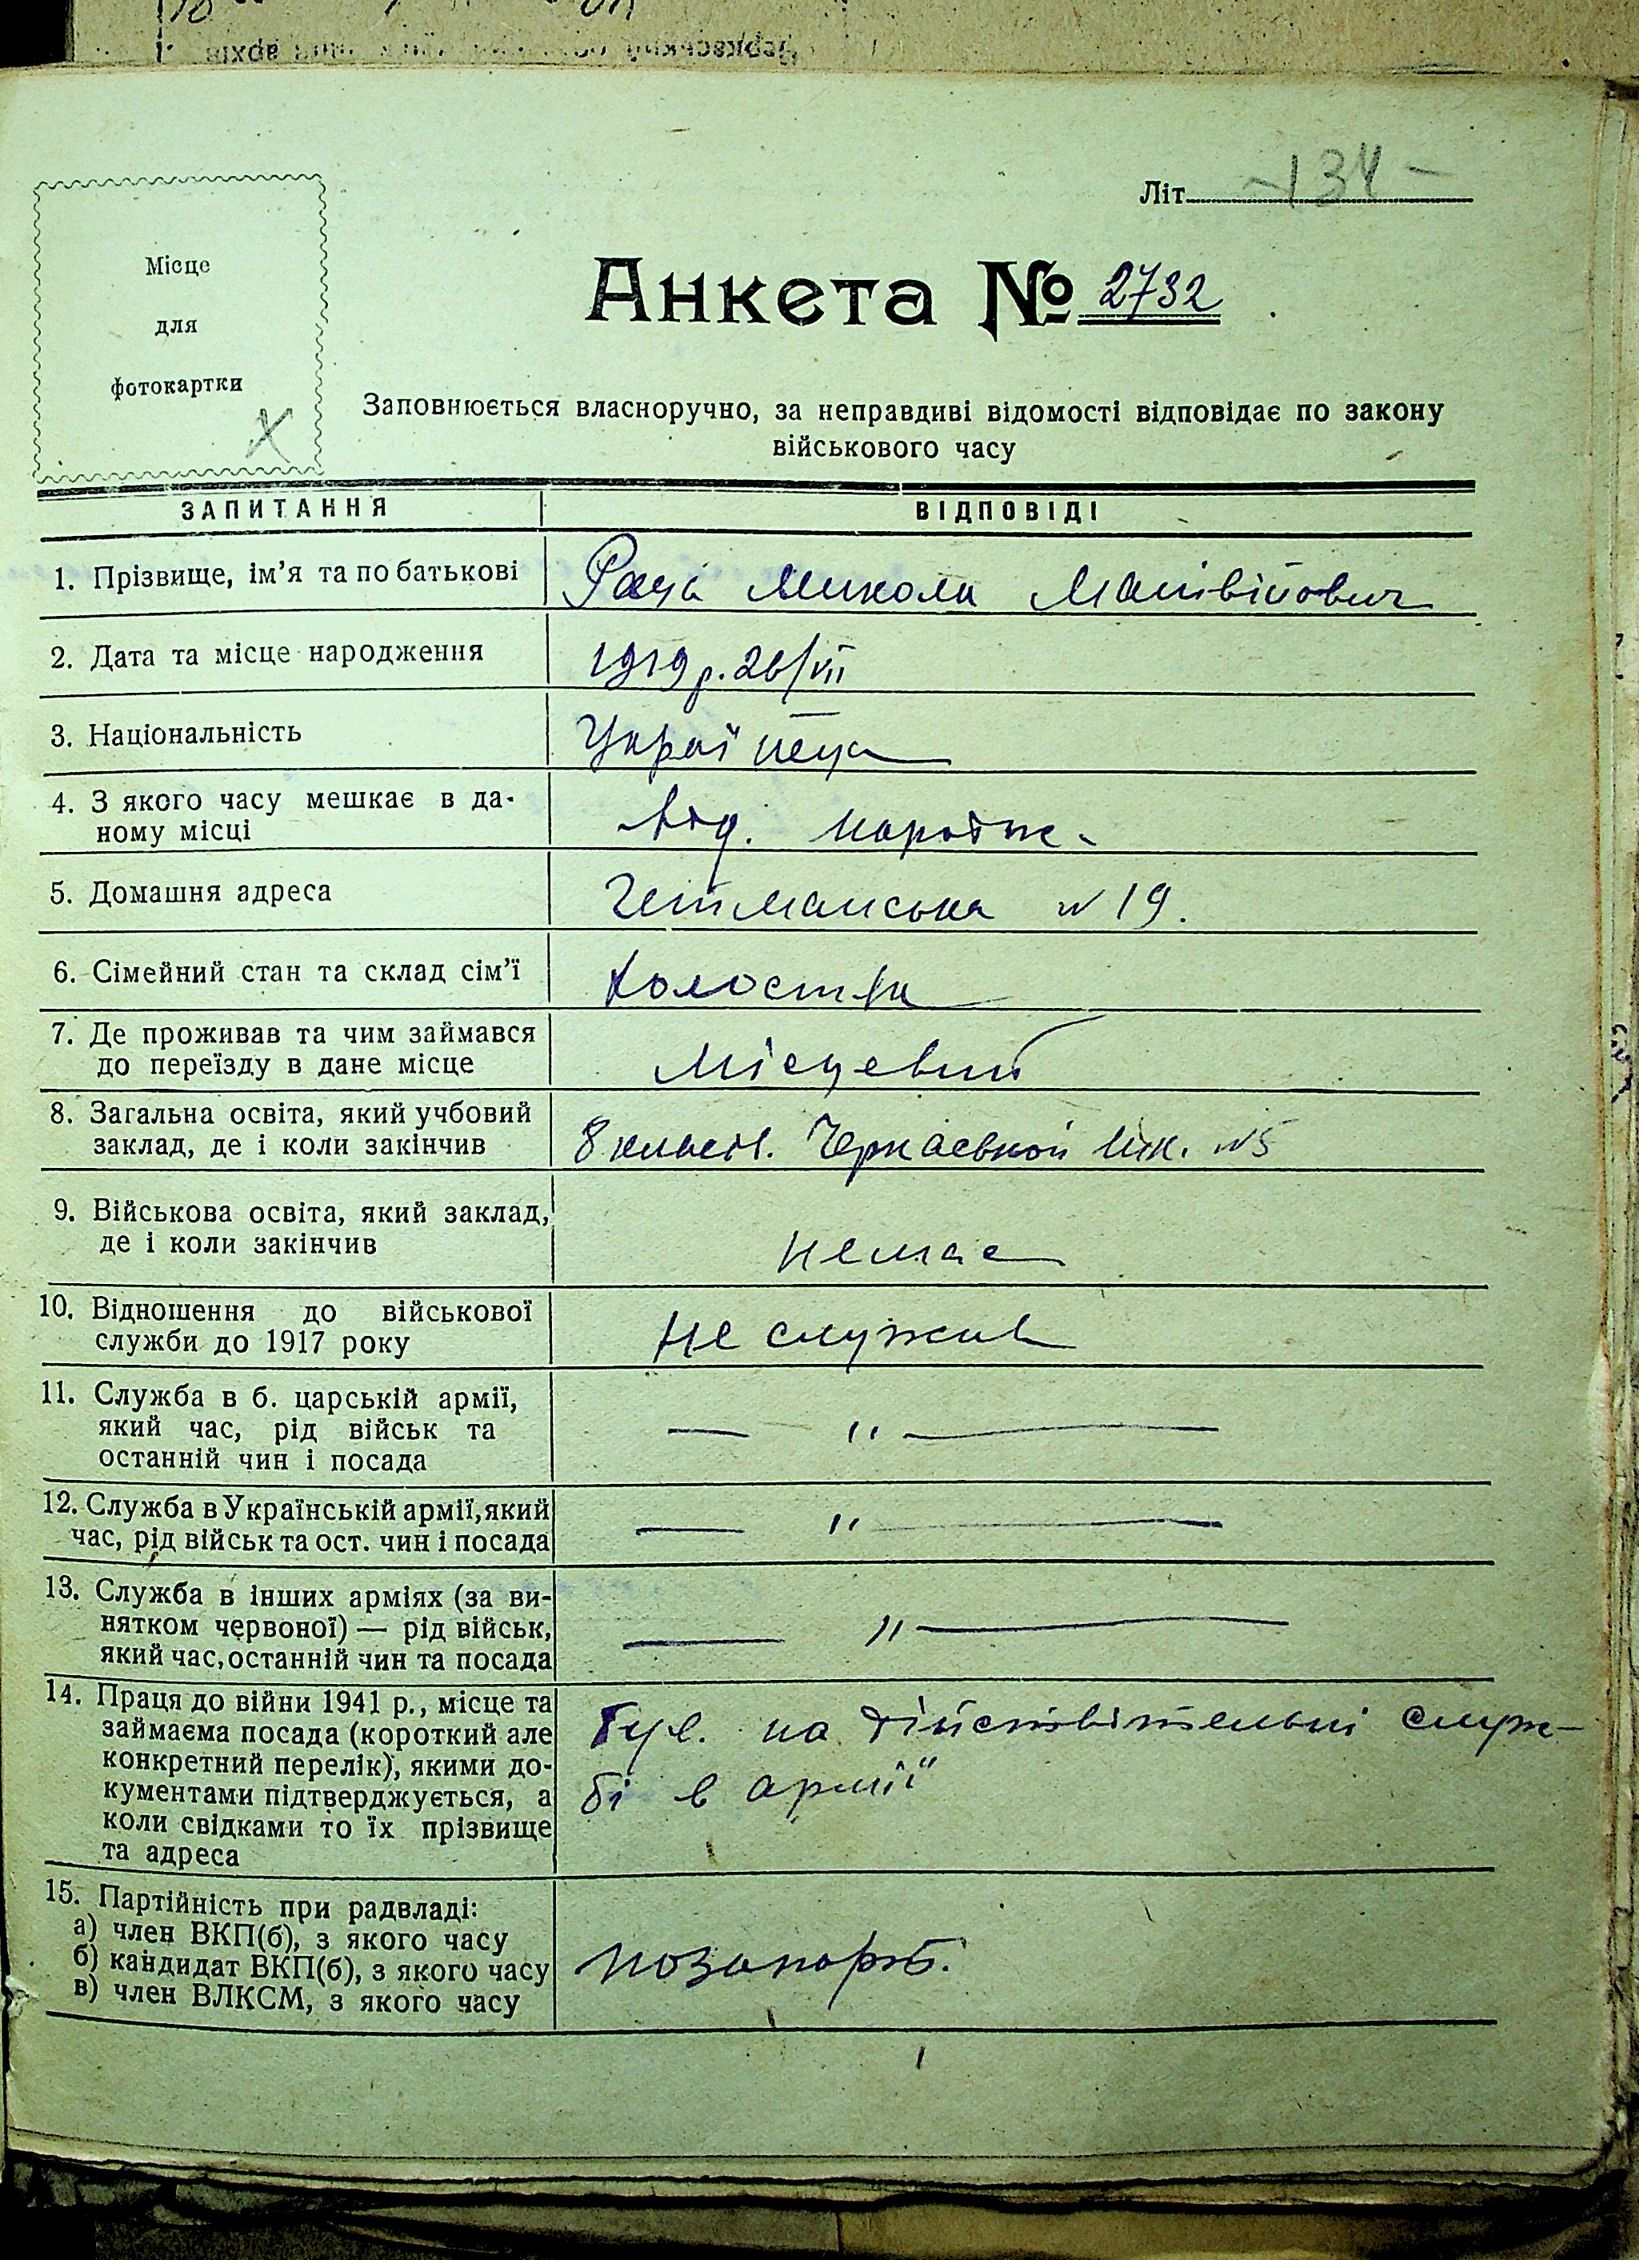 Літ. -134-
Місце
для
фотокартки
Анкета № 2732
Заповнюється власноручно, за неправдиві відомості відповідає по закону
військового часу
ЗАПИТАННЯ ВІДПОВІДІ
1. Прізвище, ім’я та по батькові Микола Матвійович
2. Дата та місце народження 1919 р. 26/VII
3. Національність Українец
4. З якого часу мешкає в да-
ному місці від. народж.
5. Домашня адреса Гетманська №19.
6. Сімейний стан та склад сім’ї
7. Де проживав та чим займався
до переїзду в дане місце Місцевий
8. Загальна освіта, який учбовий
заклад, де і коли закінчив 8 класів. Черкаської шк. №5
9. Військова освіта, який заклад,
де і коли закінчив немає
10. Відношення до військової
служби до 1917 року не служив
11. Служба в б. царській армії,
який час, рід військ та — " —
останній чин і посада
12. Служба в Українській армії, який
час, рід військ та ост. чин і посада — " —
13. Служба в інших арміях (за ви-
нятком червоної) — рід військ, — " —
який час, останній чин та посада
14. Праця до війни 1941 р., місце та
займаєма посада (короткий але Був. на дійствітельні служ-
конкретний перелік), якими до-
кументами підтверджується, а бі в армії
коли свідками то їх прізвище
та адреса
15. Партійність при радвладі:
а) член ВКП(б), з якого часу
б) кандидат ВКП(б), з якого часу позапарт.
в) член ВЛКСМ, з якого часу